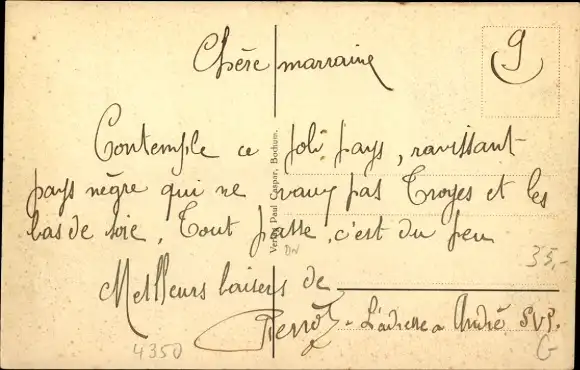 9
Chère marraine
Contemple ce joli pays, ravissant
pays nègre qui ne vaux pas Troyes et les
bas de soie, Tout passe, c'est du feu
Meilleurs baisers de
Pierrot - L'adresse a André SVP.
Verlag Paul Caspar, Bochum.
35,-
4350
G